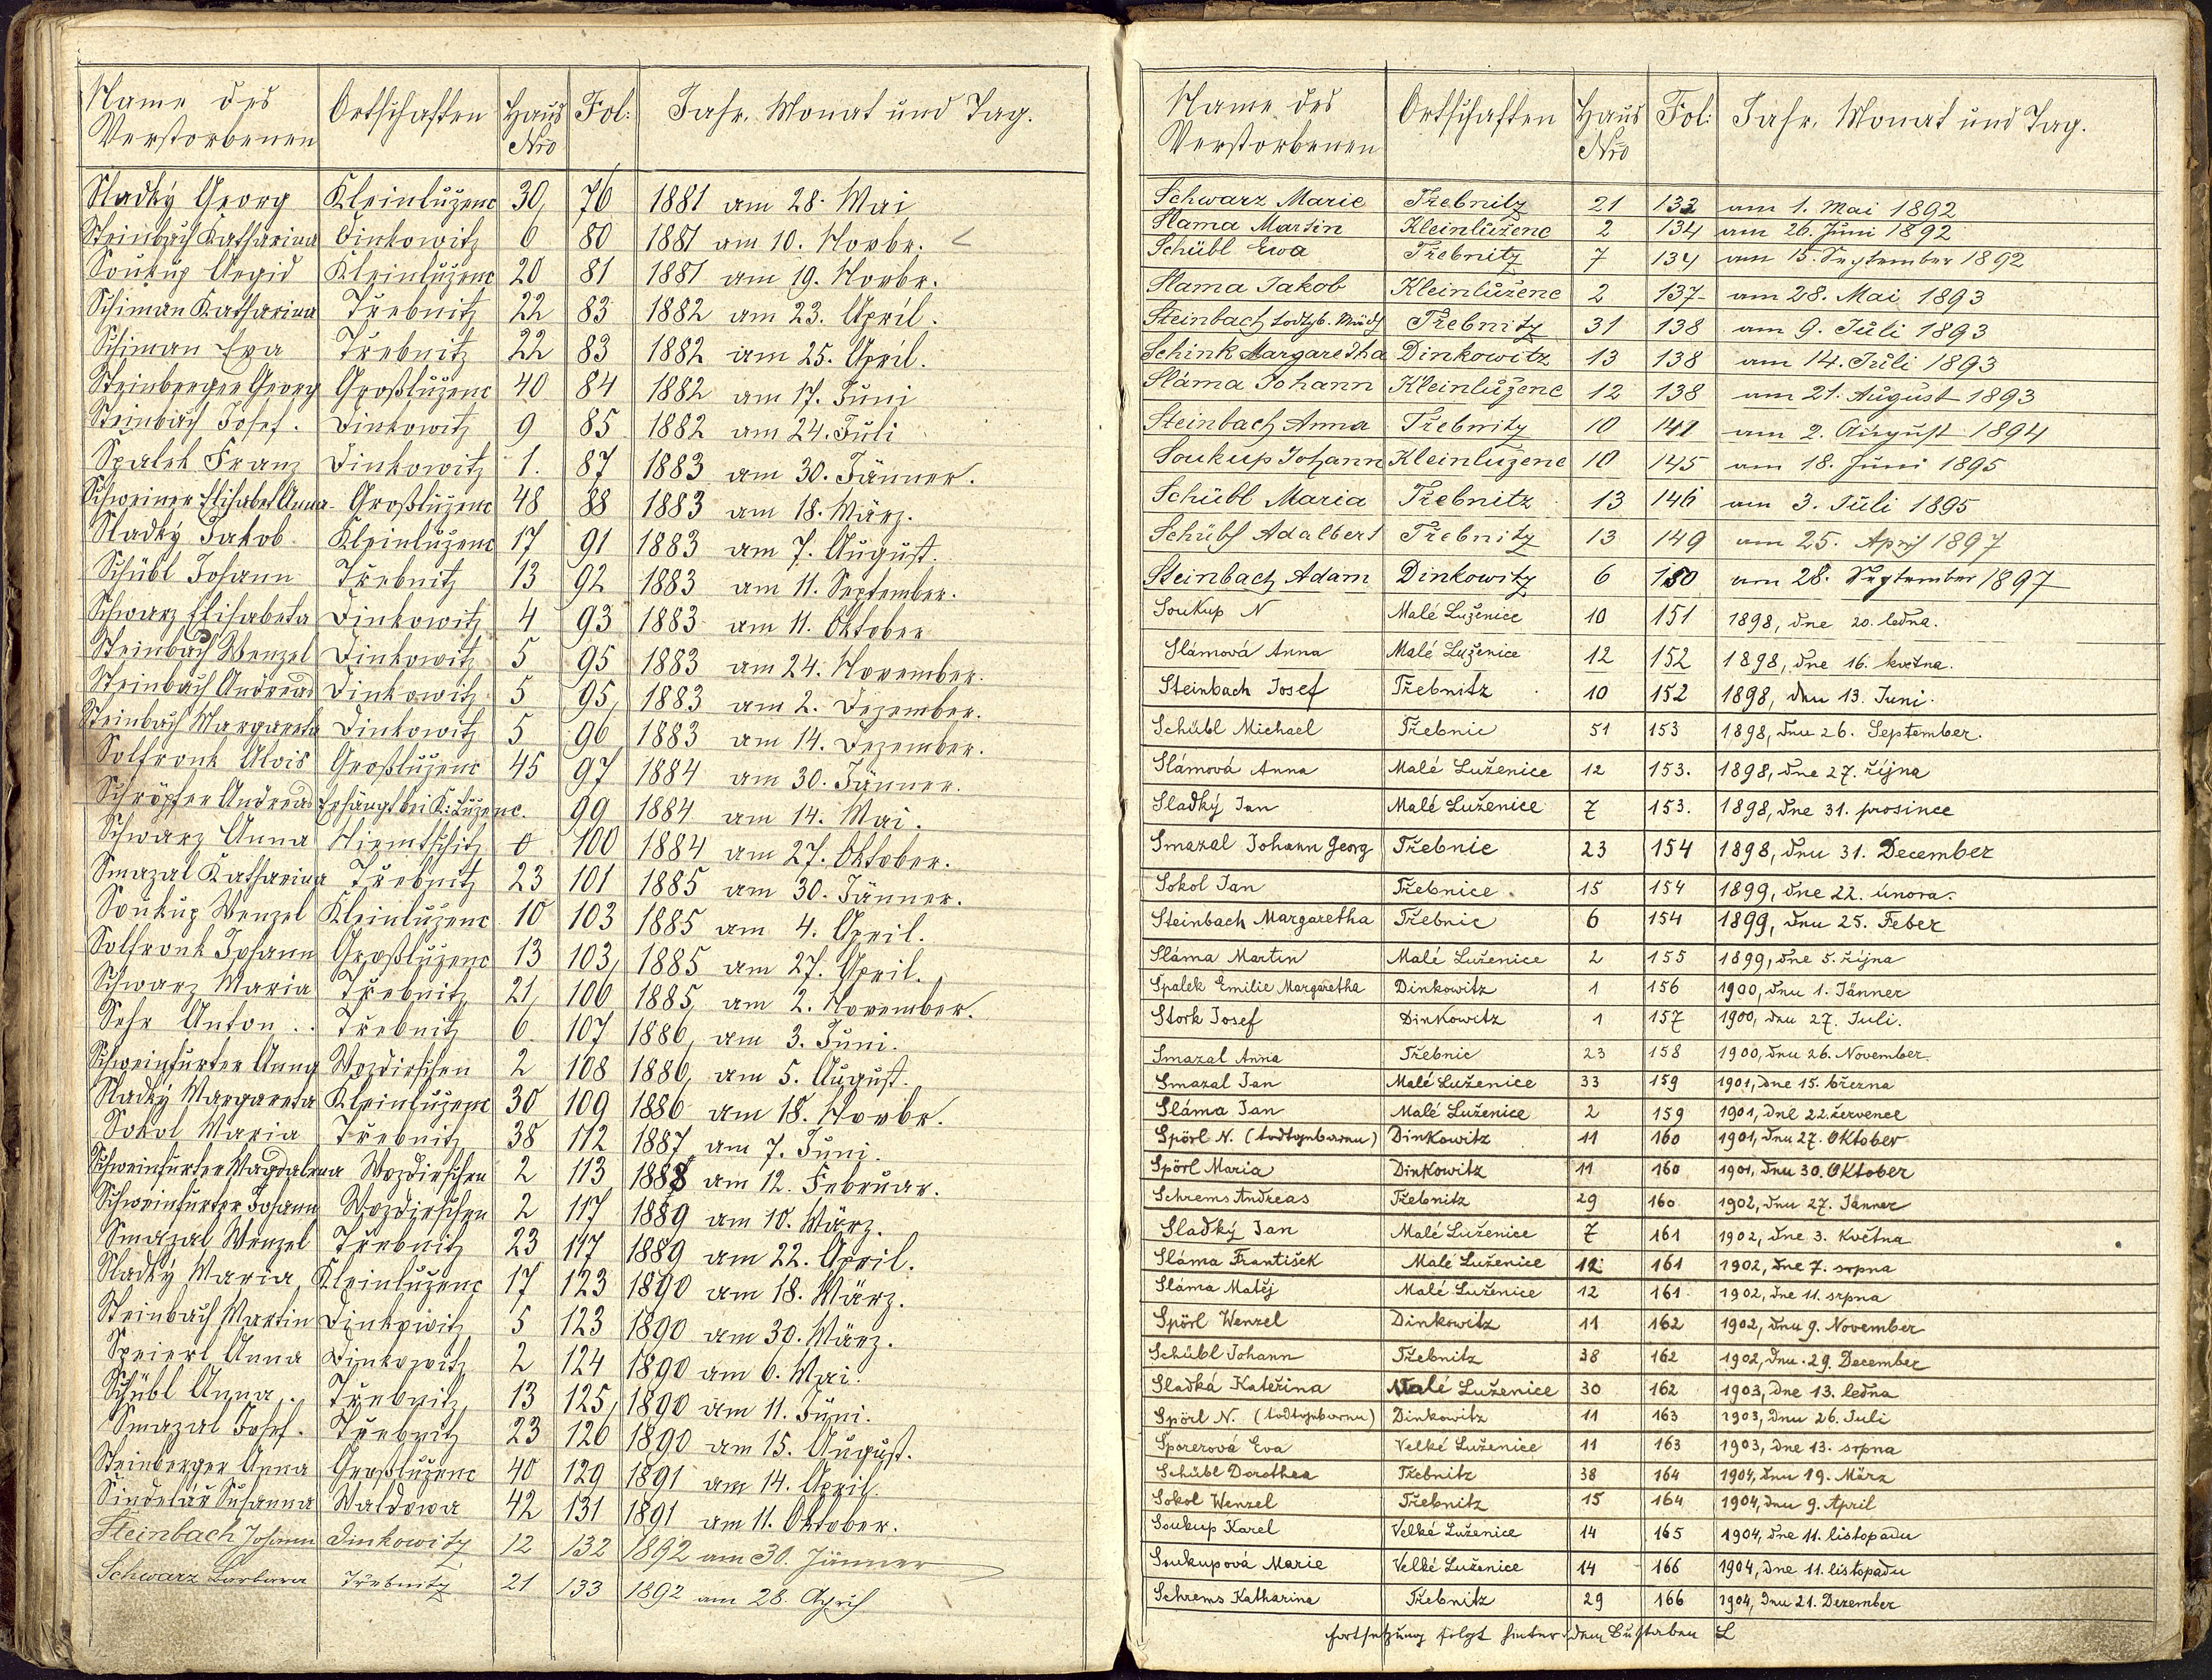 Name des Verstorbenen Ortschaften Haus Nro Fol: Jahr, Monat und Tag.
Sladký Georg Kleinluženc 30 76 1881 am 28. Mai
Steinbach Katharina Dinkowitz 6 80 1881 am 10. Novbr.
Soukup Aegid Kleinluženc 20 81 1881 am 19. Novbr.
Schiman Katharina Třebnitz 22 83 1882 am 23. April.
Schiman Eva Třebnitz 22 83 1882 am 25. April.
Steinberger Georg Großluženc 40 84 1882 am 17. Juni
Steinbach Josef. Dinkowitz 9 85 1882 am 24. Juli
Spalek Franz Dinkowitz 1. 87 1883 am 30. Jänner.
Schreiner Elisabet Anna Großluženc 48 88 1883 am 18. März.
Sladký Jakob Kleinluženc 17 91 1883 am 7. August.
Schübl Johann Třebnitz 13 92 1883 am 11. September.
Schwarz Elisabeta Dinkowitz 4 93 1883 am 11. Oktober
Steinbach Wenzel Dinkowitz 5 95 1883 am 24. November.
Steinbach Andreas Dinkowitz 5 95 1883 am 2. Dezember.
Steinbach Margareta Dinkowitz 5 96 1883 am 14. Dezember.
Solfronk Alois Großluženc 45 97 1884 am 30. Jänner.
Schröpfer Andreas Erhängt bei K: Luženc. 99 1884 am 14. Mai.
Schwarz Anna 100 1884 am 27. Oktober.
Smazal Katharina Třebnitz 23 101 1885 am 30. Jänner.
Soukup Wenzel Kleinluženc 10 103 1885 am 4. April.
Solfronk Johann Großluženc 13 103 1885 am 27. April.
Schwarz Maria Třebnitz 21 106 1885 am 2. November.
Sehr Anton.. Třebnitz 6 107 1886 am 3. Juni.
Schweinfurter Anna Wozdirschen 2 108 1886 am 5. August.
Sladký Margareta Kleinluženc 30 109 1886 am 18. Novbr.
Sokol Maria Třebnitz 38 112 1887 am 7. Juni.
Schweinfurter Magdalena Wozdirschen 2 113 1888 am 12. Februar.
Schweinfurter Johann Wozdirschen 2 117 1889 am 10. März.
Smazal Wenzel Třebnitz 23 117 1889 am 22. April.
Sladký Maria Kleinluženc 17 123 1890 am 18. März.
Steinbach Martin Dinkowitz 5 123 1890 am 30. März.
Speierl Anna Dinkowitz 2 124 1890 am 6. Mai.
Schübl Anna.. Třebnitz 13 125 1890 am 11. Juni.
Smazal Josef. Třebnitz 23 126 1890 am 15. August.
Steinberger Anna Großluženc 40 129 1891 am 14. April.
Sindelář Susanna Waldowa 42 131 1891 am 11. Oktober.
Steinbach Johann Dinkowitz 12 132 1892 am 30. Jänner
Schwarz Barbara Třebnitz 21 133 1892 am 28. April
Name des Verstorbenen Ortschaften Haus Nro Fol: Jahr, Monat und Tag.
Schwarz Marie Třebnitz 21 133 am 1. Mai 1892
Slama Martin Kleinluženc 2 134 am 26. Juni 1892
Schübl Ewa Třebnitz 7 134 am 15. September 1892
Slama Jakob Kleinlužene 2 137 am 28. Mai 1893
Steinbach todtgb. Mädch Třebnitz 31 138 am 9. Juli 1893
Schink Margaretha Dinkowitz 13 138 am 14. Juli 1893
Sláma Johann Kleinlužene 12 138 am 21. August 1893
Steinbach Anna Třebnitz 10 141 am 2. August 1894
Soukup Johann Kleinlužene 10 145 am 18. Juni 1895
Schübl Maria Třebnitz 13 146 am 3. Juli 1895
Schübl Adalbert Třebnitz 13 149 am 25. April 1897
Steinbach Adam Dinkowitz 6 150 am 28. September 1897
Soukup N Malé Luženice 10 151 1898, dne 20. ledna.
Slámová Anna Malé Luženice 12 152 1898, dne 16. května.
Steinbach Josef Třebnitz 10 152 1898, den 13. Juni.
Schübl Michael Třebnic 51 153 1898, den 26. September.
Slámová Anna Malé Luženice 12 153. 1898, dne 27. října
Sladký Jan Malé Luženice 7 153. 1898, dne 31. prosince
Smazal Johann Georg Třebnic 23 154 1898, den 31. December
Sokol Jan Třebnice. 15 154 1899, dne 22. února.
Steinbach Margaretha Třebnic 6 154 1899, den 25. Feber
Sláma Martin Malé Luženice 2 155 1899, dne 5. října
Spalek Emilie Margaretha Dinkowitz 1 156 1900, den 1. Jänner
Stork Josef Dinkowitz 1 157 1900, den 27. Juli.
Smazal Anna Třebnic 23 158 1900, den 26. November.
Smazal Jan Malé Luženice 33 159 1901, dne 15. března
Sláma Jan Malé Luženice 2 159 1901, dne 22. července
Spörl N. (todtgeboren) Dinkowitz 11 160 1901, den 27. Oktober
Spörl Maria Dinkowitz 11 160 1901, den 30. Oktober
Schrems Andreas Třebnitz 29 160 1902, den 27. Jänner
Sladký Jan Malé Luženice 7 161 1902, dne 3. května
Sláma František Malé Luženice 12 161 1902, dne 7. srpna
Sláma Matěj Malé Luženice 12 161 1902, dne 11. srpna
Spörl Wenzel Dinkowitz 11 162 1902, den 9. November
Schübl Johann Třebnitz 38 162 1902, den 29. December
Sladká Kateřina Malé Luženice 30 162 1903, dne 13. ledna
Spörl N. (todtgeboren) Dinkowitz 11 163 1903, den 26. Juli
Sporerová Eva Velké Luženice 11 163 1903, dne 13. srpna
Schübl Dorothea Třebnitz 38 164 1904, den 19. März
Sokol Wenzel Třebnitz 15 164 1904, den 9. April
Soukup Karel Velké Luženice 14 165 1904, dne 11. listopadu
Soukupová Marie Velké Luženice 14 166 1904, dne 11. listopadu
Schrems Katharina Třebnitz 29 166 1904, den 21. Dezember
Fortsetzung folgt hinter dem Buchstaben